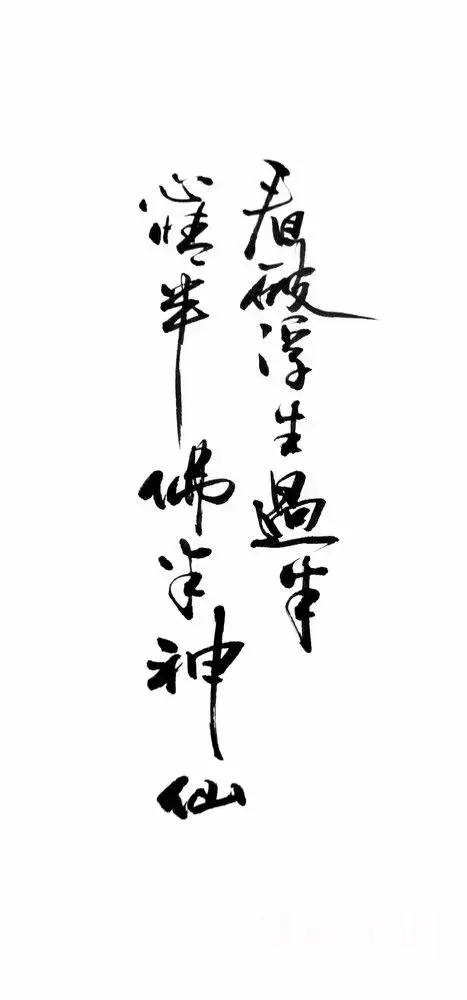 看破浮生過半
心情半佛半神仙